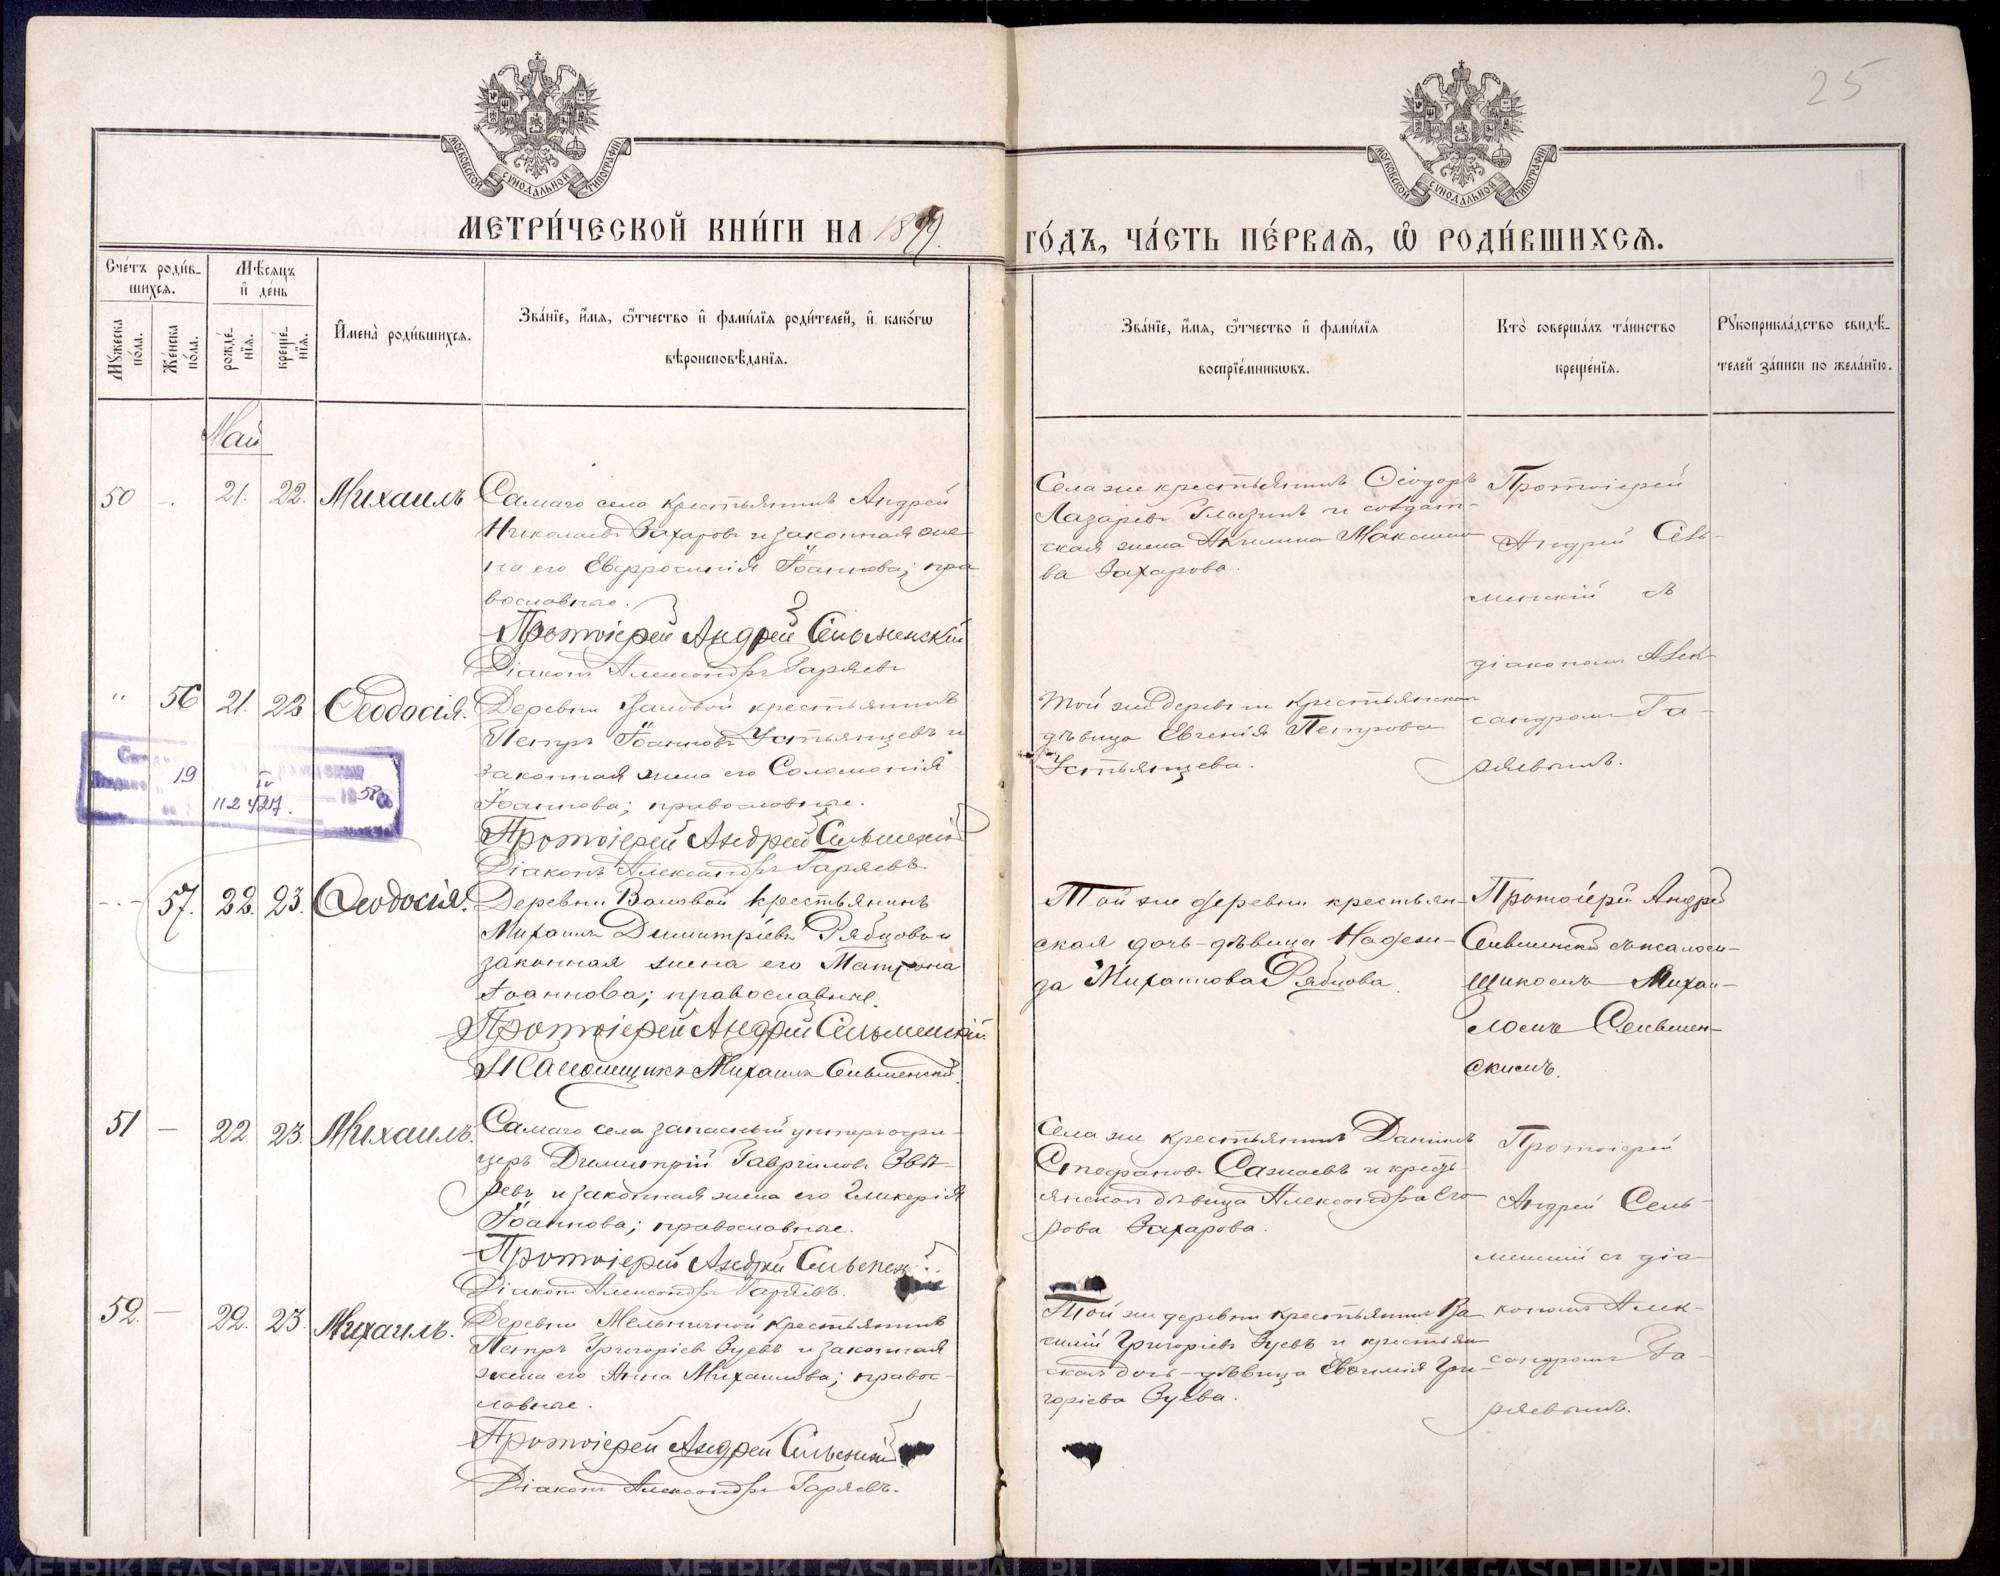 25
МОСКОВСКОЙ СѴНОДАЛЬНОЙ ТИПОГРАФІИ
МОСКОВСКОЙ СѴНОДАЛЬНОЙ ТИПОГРАФІИ
МЕТРИ́ЧЕСКОЙ КНИ́ГИ НА 1899.
ГО́ДЪ, ЧА́СТЬ ПЕ́РВАѦ, Ѡ РОДИ́ВШИХСѦ.
Сче́тъ роди́в-
шихсѧ.
Мꙋ́жеска по́ла.
Же́нска по́ла.
Мѣ́сѧцъ
и҆ де́нь
рожде́-
нїѧ.
креще́-
нїѧ.
И҆мена̀ роди́вшихсѧ.
Зва́нїе, и҆́мѧ, ѻ҆́тчество и҆ фамилїѧ роди́телей, и҆ како́гѡ
вѣроисповѣ́данїѧ.
Зва́нїе, и҆́мѧ, ѻ҆́тчество и҆ фами́лїѧ
воспрїе́мникѡвъ.
Кто̀ соверша́лъ та́инство
креще́нїѧ.
Рꙋкоприкла́дство свидѣ́-
телей за́писи по жела́нїю.
Май
50 - 21. 22. Михаилъ
Самаго села крестьянинъ Андрей
Николаевъ Захаровъ и законная же-
на его Евфросинія Іоаннова; пра
вославные.
Протоіерей Андрей Сельменскій
Діаконъ Александръ Гаряевъ
Села же крестьянинъ Ѳеодоръ
Лазаревъ и солдат-
ская жена Акилина Максимо
ва Захарова.
Протоіерей
Андрей Сель-
менскій съ
діакономъ Алек-
сандромъ Га-
ряевымъ.
" 56 21. 22 Ѳеодосія.
Деревни Валовой крестьянинъ
Петръ Іоанновъ Устьянцевъ и
законная жена его Соломонія
Іоаннова; православные.
Протоіерей Андрей Сельменскій
Діаконъ Александръ Гаряевъ
Той же деревни крестьянская
дѣвица Евгенія Петрова
Устьянцева.
19
IV
112 427.
1958
57. 22. 23. Ѳеодосія.
Деревни Валовой крестьянинъ
Михаилъ Димитріевъ Рябцовъ и
законная жена его Матрона
Іоаннова; православные.
Протоіерей Андрей Сельменскій.
Псаломщикъ Михаилъ Сельменскій.
Той же деревни крестьян-
ская дочь-дѣвица Надеж-
да Михаилова Рябцова.
Протоіерей Андрей
Сельменскій съ псалом-
щикомъ Михаи-
ломъ Сельмен-
скимъ.
51 — 22. 23. Михаилъ.
Самаго села запасный унтеръ-офи-
церъ Димитрій Гавриловъ Звѣ-
ревъ и законная жена его Гликерія
Іоаннова; православные.
Протоіерей Андрей Сельменскій
Діаконъ Александръ Гаряевъ.
Села же крестьянинъ Даніилъ
Стефановъ Сажаевъ и кресть-
янская дѣвица Александра Его
рова Захарова.
Протоіерей
Андрей Сель-
менскій съ діа
кономъ Алек-
сандромъ Га-
ряевымъ.
52. — 22. 23. Михаилъ.
Деревни Мельничной крестьянинъ
Петръ Григоріевъ Зуевъ и законная
жена его Анна Михаилова; правос-
лавные.
Протоіерей Андрей Сельменскій
Діаконъ Александръ Гаряевъ.
Той же деревни крестьянинъ Ва
силій Григоріевъ Зуевъ и крестьян
ская дочь-дѣвица Евѳимія Гри-
горіева Зуева.
METRIKI.GASO-URAL.RU